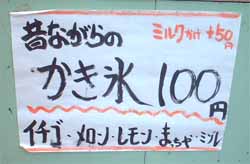 昔ながらの
ミルクがけ +50円
かき氷 100円
イチゴ・メロン・レモン・まっちゃ・ミゾレ